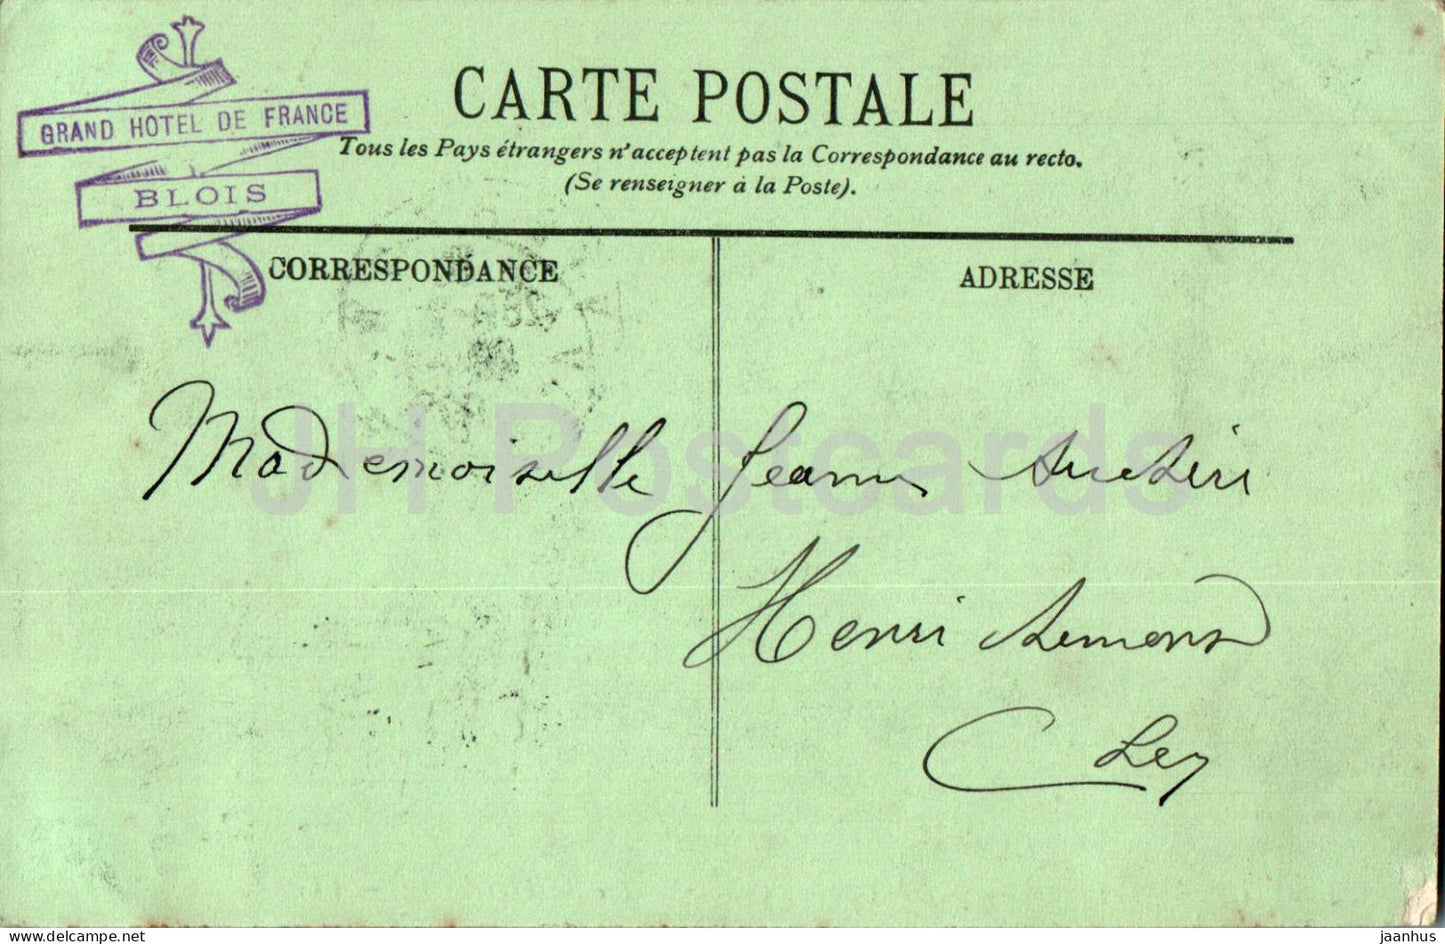 GRAND HOTEL DE FRANCE
BLOIS
CARTE POSTALE
Tous les Pays étrangers n'acceptent pas la Correspondance au recto.
(Se renseigner à la Poste).
CORRESPONDANCE
ADRESSE
Mademoiselle Jeanne
Henri
JH Postcards
delcampe.net
jaanhus